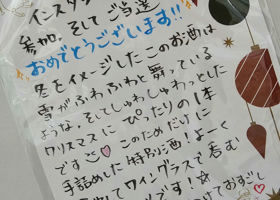 インスタ
参加、そしてご当選
おめでとうございます!!
冬をイメージしたこのお酒は
雪がふわふわと舞っている
ような、そしてしゅわしゅわっとした
クリスマスにぴったりの1本
です このためだけに
手詰めした特別酒!よーく
してワイングラスで呑む
です!☆